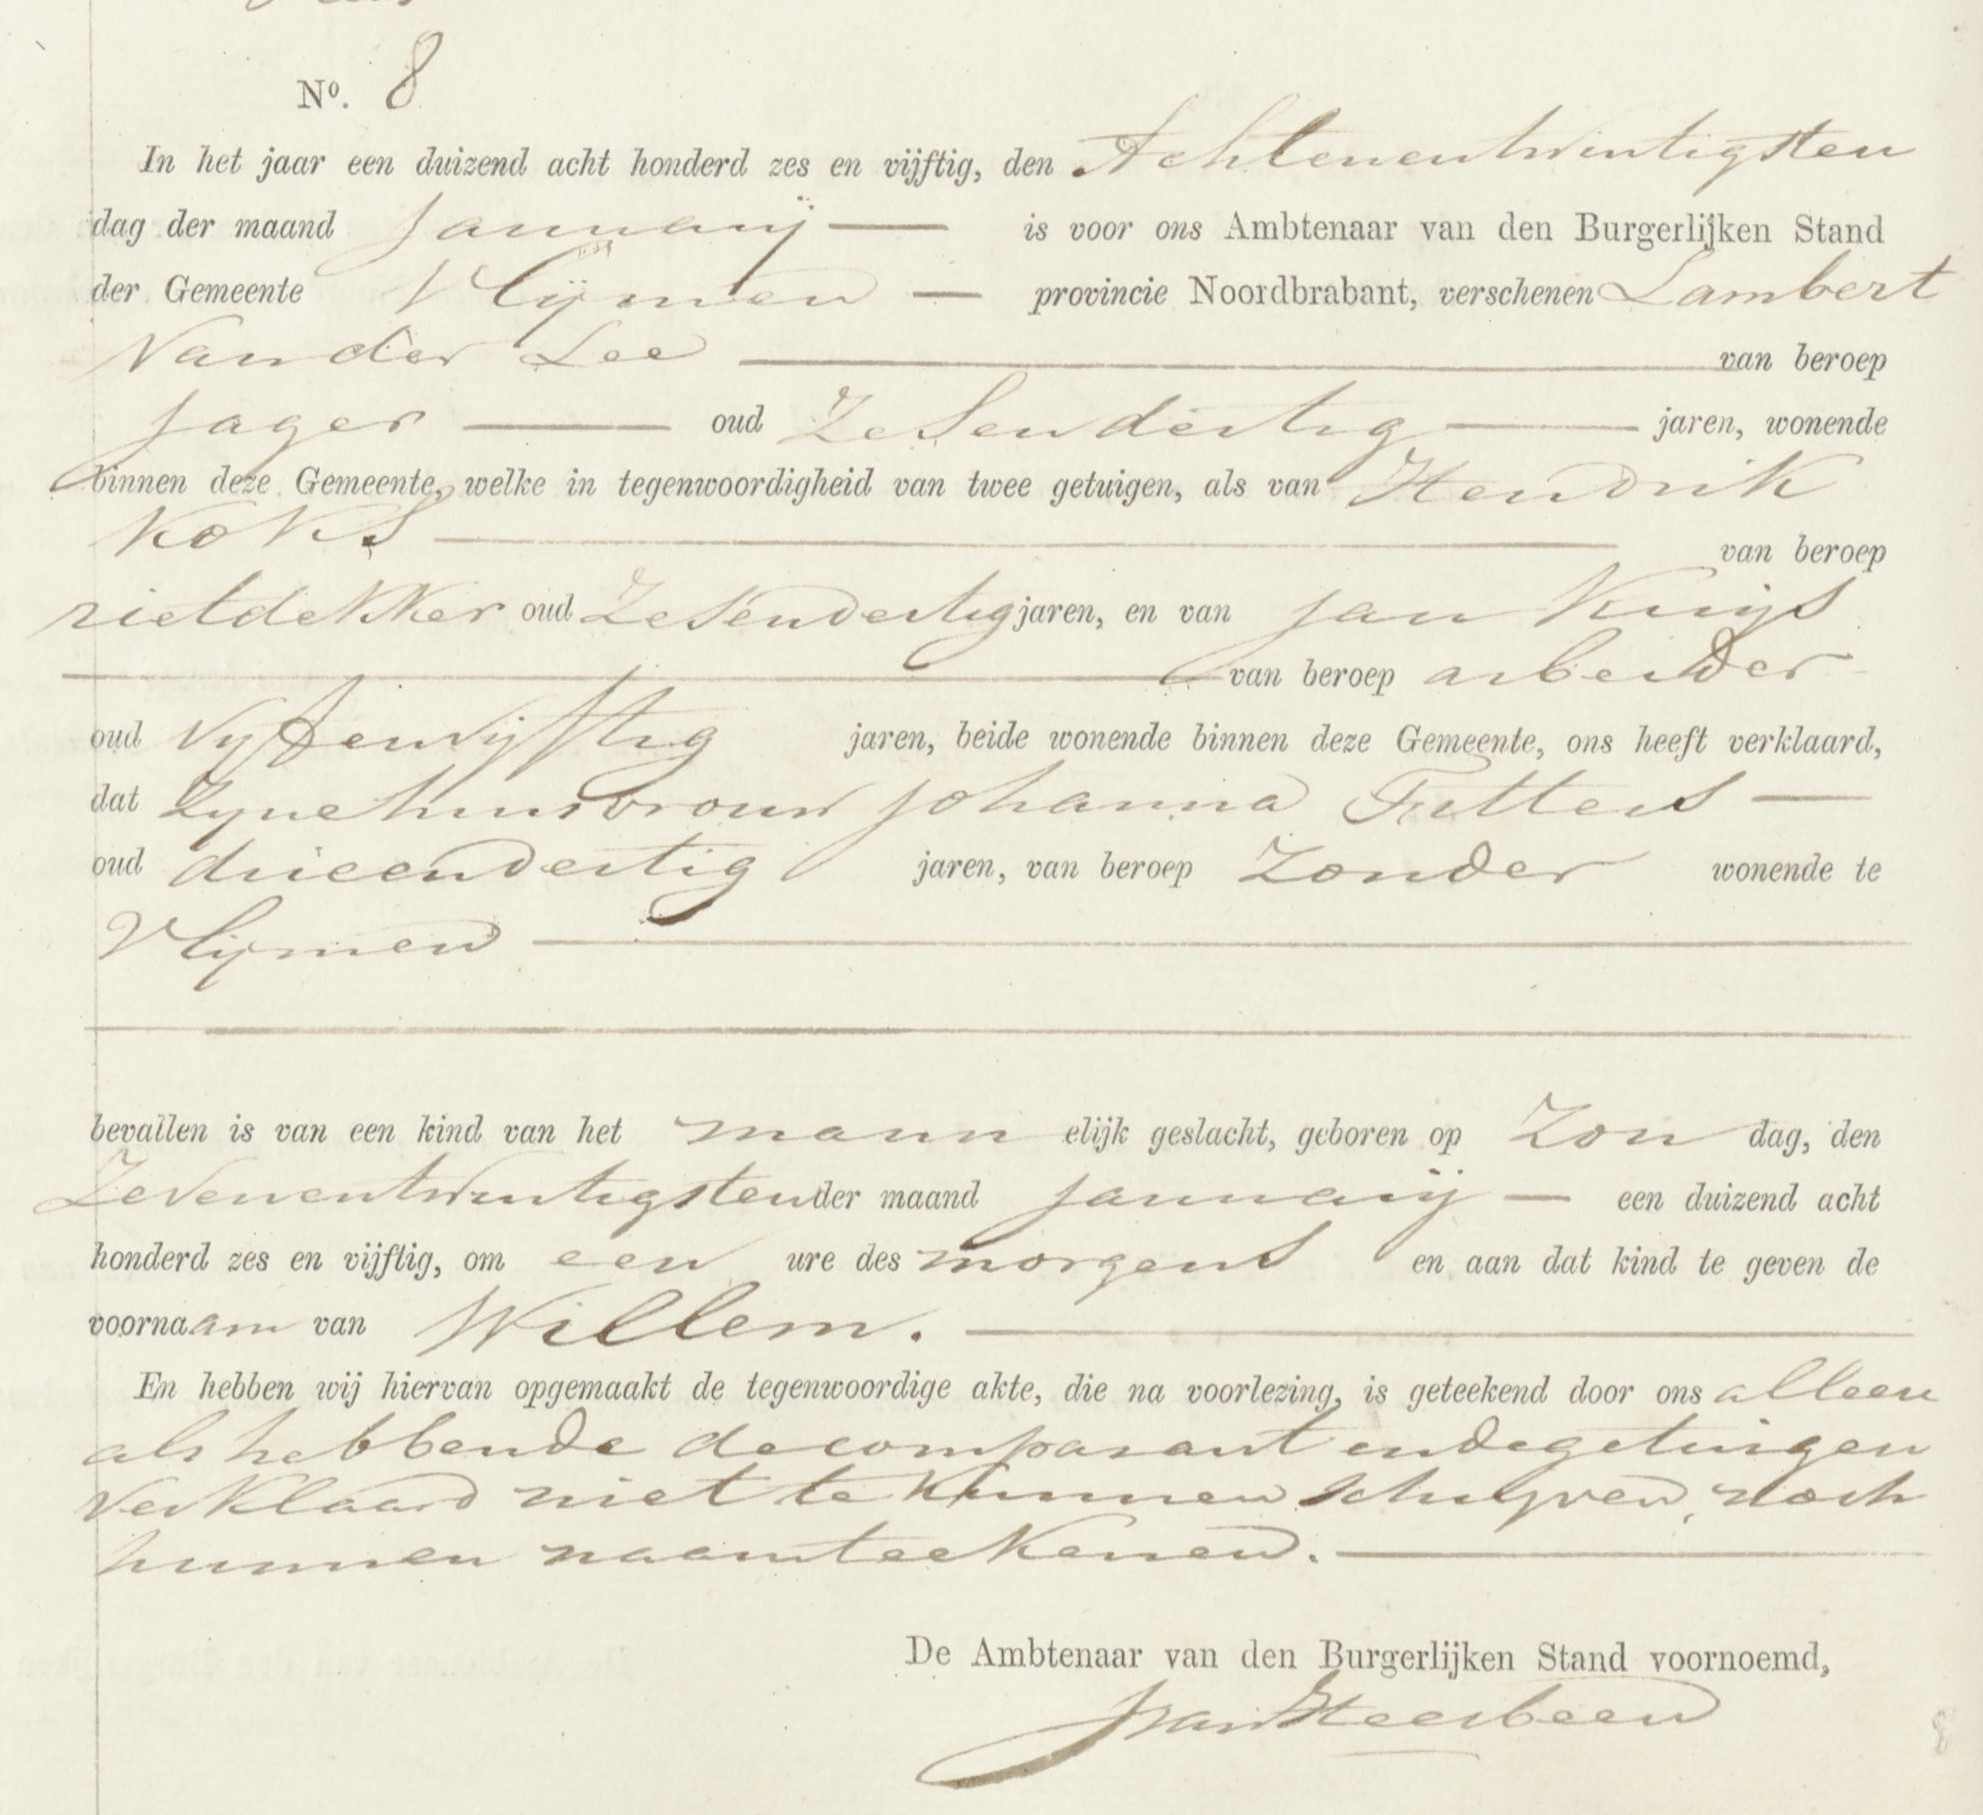 No. 8
In het jaar een duizend acht honderd zes en vijftig, den Achtenentwintigsten
dag der maand Januarij — is voor ons Ambtenaar van den Burgerlijken Stand
der Gemeente Vlijmen — provincie Noordbrabant, verschenen Lambert
van der Lee — van beroep
Jager — oud Zesendertig — jaren, wonende
binnen deze Gemeente, welke in tegenwoordigheid van twee getuigen, als van Hendrik
Koks — van beroep
rietdekker oud Zesendertig jaren, en van Jan Kuijs
— van beroep arbeider
oud Vyfenvijftig jaren, beide wonende binnen deze Gemeente, ons heeft verklaard,
dat Zyne huisvrouw Johanna —
oud drieendertig jaren, van beroep Zonder wonende te
Vlijmen —
bevallen is van een kind van het mann elijk geslacht, geboren op Zon dag, den
Zevenentwintigsten der maand Januarij — een duizend acht
honderd zes en vijftig, om een ure des morgens en aan dat kind te geven de
voornaam van Willem. —
En hebben wij hiervan opgemaakt de tegenwoordige akte, die na voorlezing, is geteekend door ons alleen
als hebbende de comparant en de getuigen
verklaard niet te kunnen schryven, noch
hunnen naam teekenen. —
De Ambtenaar van den Burgerlijken Stand voornoemd,